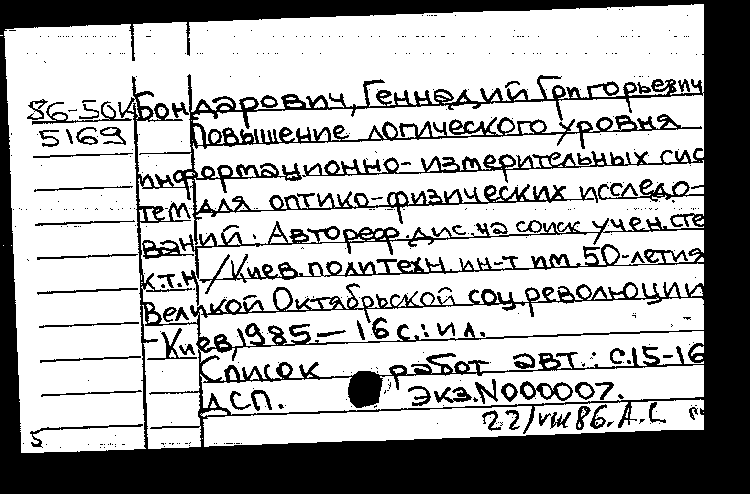 86-50К Бондарович, Геннадий Григорьевич
5169 Повышение логического уровня
информационно-измерительных сис
тем для оптико-физических исследо-
ваний: Автореф. дис. на соиск учен. сте
к.т.н /Киев. политехн. ин-т им. 50-летия
Великой Октябрьской соц. революции
- Киев, 1985. — 16 с.: ил.
Список работ авт.: с. 15-16
ДСП. Экз. N000007.
22/VIII 86. А.С.
5